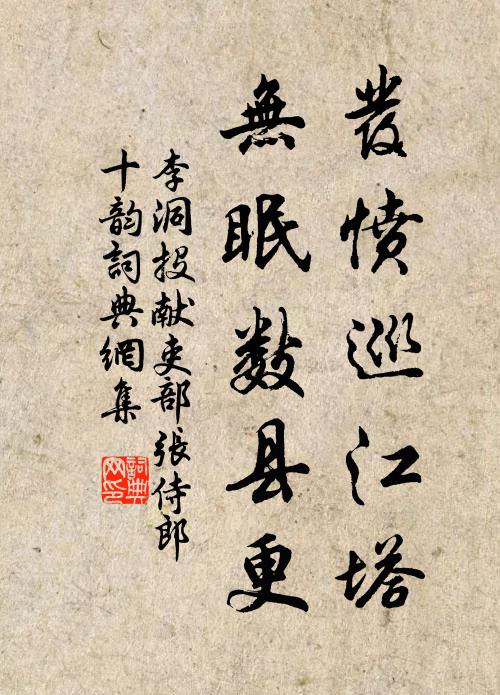 發憤巡江塔
無眠數县更
李洞投献吏部張侍郎
十韵詞典網集
詞典
网印